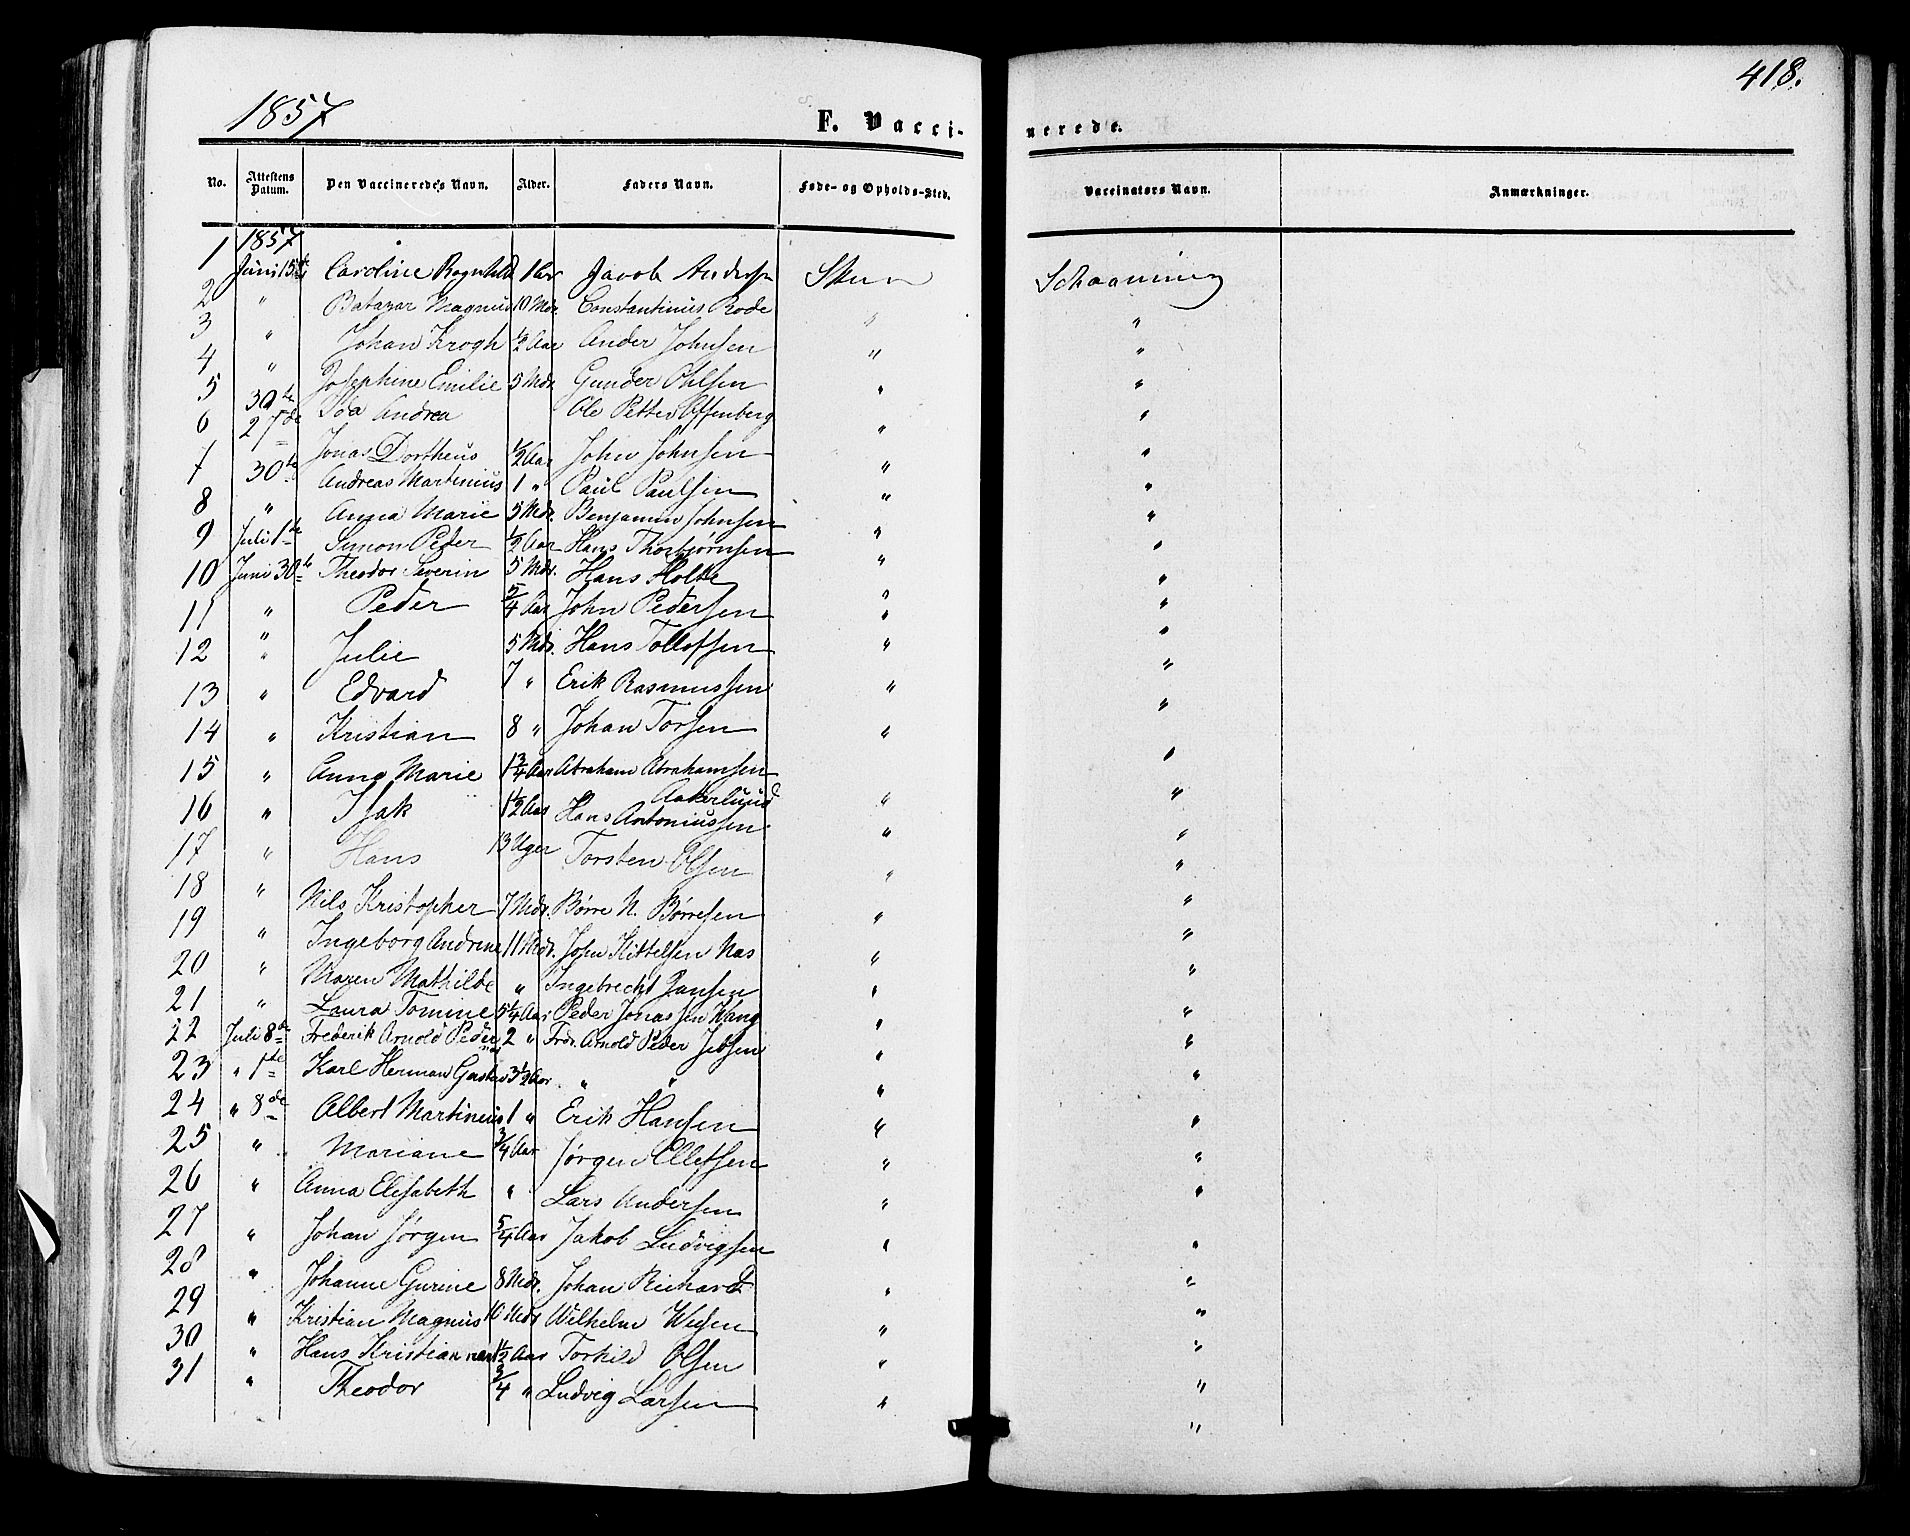 418.
1857
F. Vaccinerede.
No. Attestens Datum. Den Vaccineredes Navn. Alder. Faders Navn. Føde- og Opholds-Sted. Vaccinators Navn. Anmærkninger.
1857
1 Juni 15de Caroline Ragnhild 1 Aar Jacob Anders Skien Schaanning
2 " Batazar Magnus 10 Mdr. Constantinus Rode " "
3 " Johan Krogh 1/2 Aar Ander Johnsen " "
4 " Josephine Emilie 5 Mdr. Gunder Ohlsen " "
5 30te Ida Andrea Ole Petter Offenberg " "
6 27de Jonas Dortheus 1/2 Aar John Johnsen " "
7 30te Andreas Martinius 1 " Paul Paulsen " "
8 " Anna Marie 5 Mdr. Benjamin Johnsen " "
9 Juli 1te Simon Peder 1/2 Aar Hans Thorbjørnsen " "
10 Juni 30te Theodor Severin 5 Mdr. Hans Holte " "
11 " Peder 5/4 Aar John Pedersen " "
12 " Julie 5 Mdr. Hans Tollofsen " "
13 " Edvard 7 " Erik Rasmussen " "
14 " Kristian 8 " Johan Torsen " "
15 " Anna Marie 1 3/4 Aar Abraham Abrahamsen Aakerlund " "
16 " Isak 1 1/2 Aar Hans Antoniussen " "
17 " Hans 13 Uger Torsten Olsen " "
18 " Nils Kristopher 7 Mdr. Børre N. Børresen " "
19 " Ingeborg Andrine 11 Mdr. John Kittelsen Nas " "
20 " Maren Mathilde " Ingebrecht Jansen " "
21 " Laura Tomine 5 1/4 Aar Peder Jonassen Wang " "
22 Juli 8de Frederik Arnold Peder 2 " Frdr. Arnold Peder Jebsen " "
23 " 1te Karl Herman Gustav 3 1/2 Aar " " " "
24 " 8de Albert Martineus 1 " Erik Hansen " "
25 " Mariane 3/4 Aar Jørgen Elletsen " "
26 " Anna Elisabeth " Lars Andersen " "
27 " Johan Jørgen 5/4 Aar Jakob Ludvigsen " "
28 " Johanne Gurine 8 Mdr. Johan Richardt " "
29 " Kristian Magnus 10 Mdr Wilhelm " "
30 " Hans Kristian 1 1/2 Aar Torkild Olsen " "
31 " Theodor 3/4 " Ludvig Larsen " "